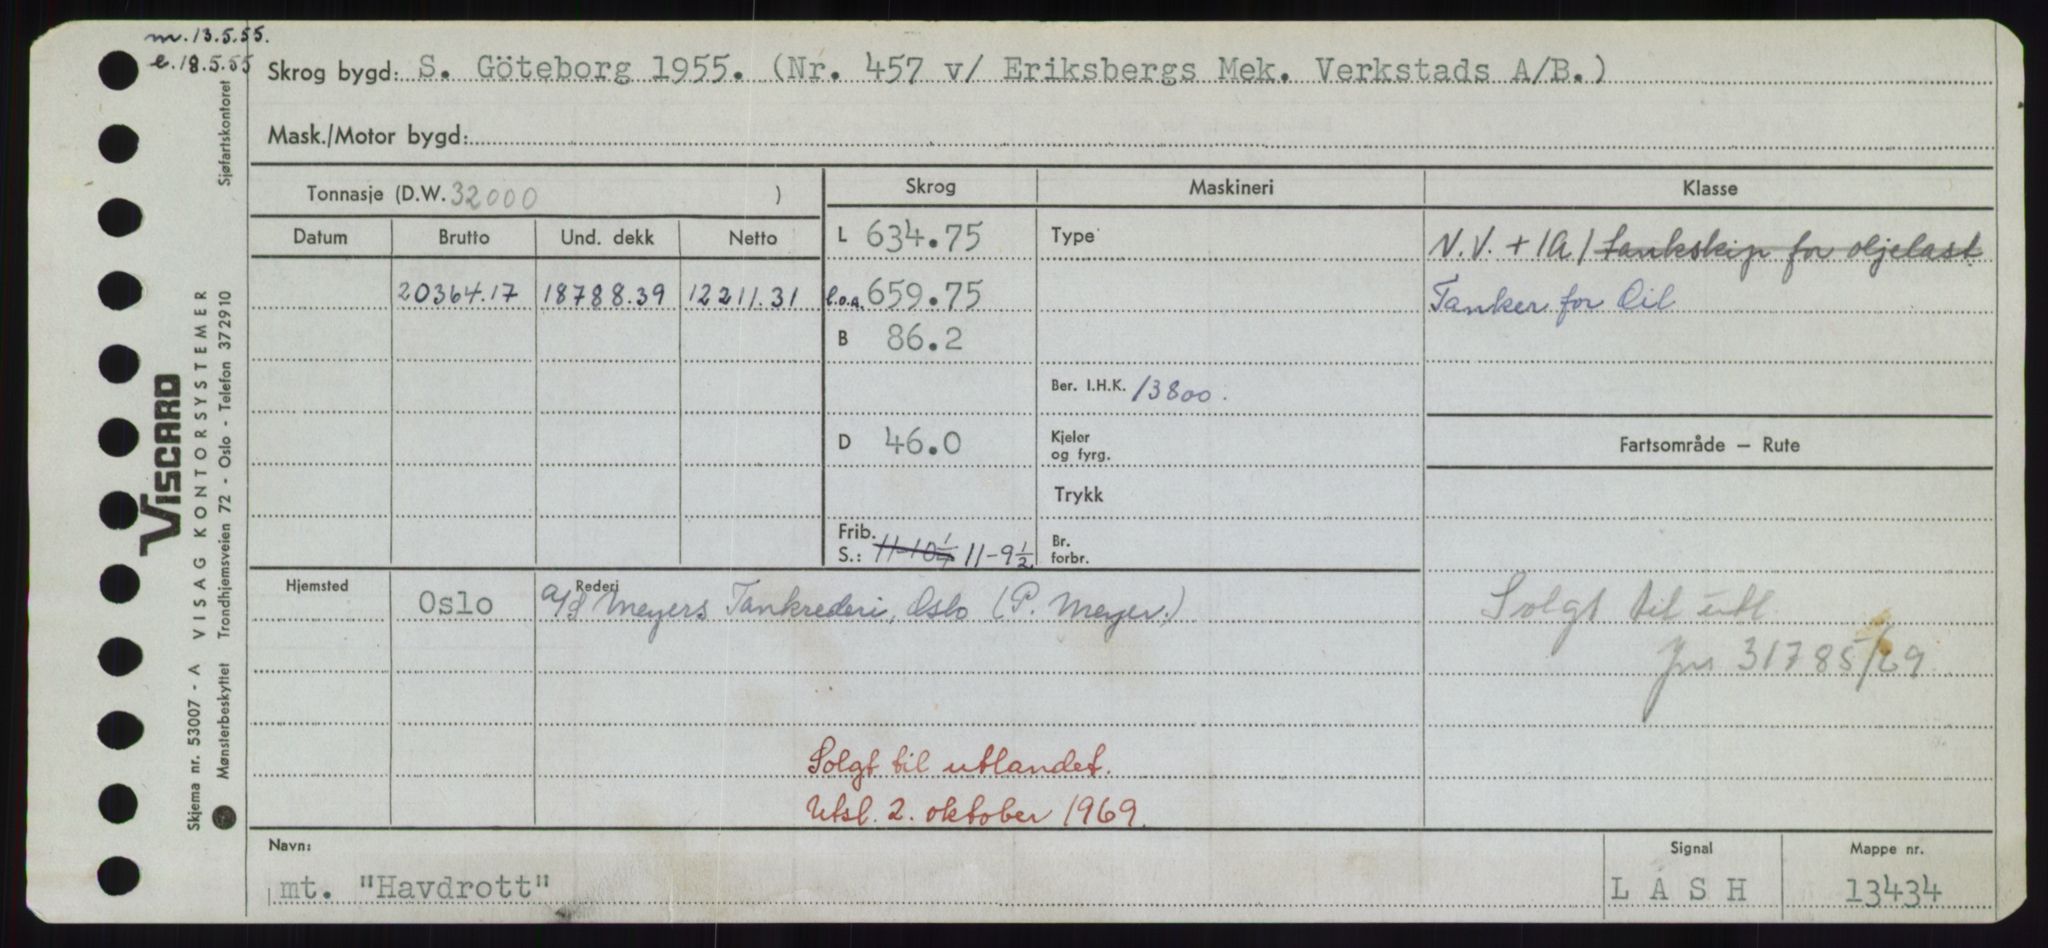 m. 13.5.55.
e. 18.5.55
Skrog bygd: S. Göteborg 1955. (Nr. 457 v/ Eriksbergs Mek. Verkstads A/B.)
Mask./Motor bygd:
Tonnasje (D.W. 32000 )
Skrog
Maskineri
Klasse
Datum Brutto Und. dekk Netto
L 634.75
Type
N.V. + 1A1 tankskip for oljelast
20364.17 18788.39 12211.31
l.o.a. 659.75
Tanker for Oil
B 86.2
Ber. I.H.K. 13800.
D 46.0
Kjeler
og fyrg.
Fartsområde — Rute
Trykk
Frib.
S.: 11-10 1/4 11-9 1/2
Br.
forbr.
Hjemsted Oslo
Rederi
A/S Meyers Tankrederi, Oslo (P. Meyer.)
Solgt til utl
Jnr 31785/69
Solgt til utlandet.
Utsl. 2. oktober 1969.
Navn:
mt. "Havdrott"
Signal
L A S H
Mappe nr.
13434
VISCARD
Skjema nr. 53007 - A VISAG KONTORSYSTEMER
Mønsterbeskyttet Trondhjemsveien 72 - Oslo - Telefon 372910 Sjøfartskontoret